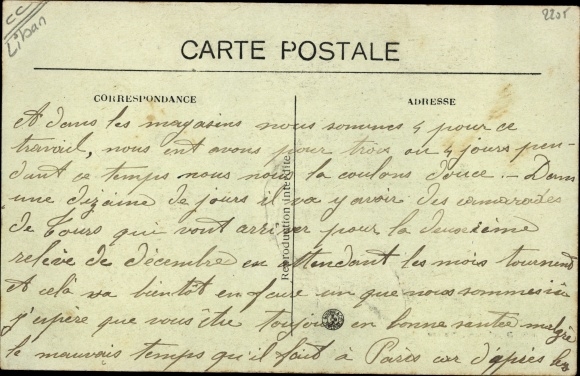 CC
Liban
2205
CARTE POSTALE
CORRESPONDANCE
ADRESSE
Reproduction interdite
A dans les magasins nous sommes 4 pour ce
travail, nous ent avons pour trois ou 4 jours pen-
dant ce temps nous nous la coulons douce. - Dans
une dizaine de jours il va y avoir des camarades
de Tours qui vont arriver pour la deuxième
relève de décembre en attendant les mois tournent
A celà va bientôt en faire un que nous sommes ici
j'espère que vous être toujours en bonne santée malgré
le mauvais temps qu'il fait à Paris car d'après les